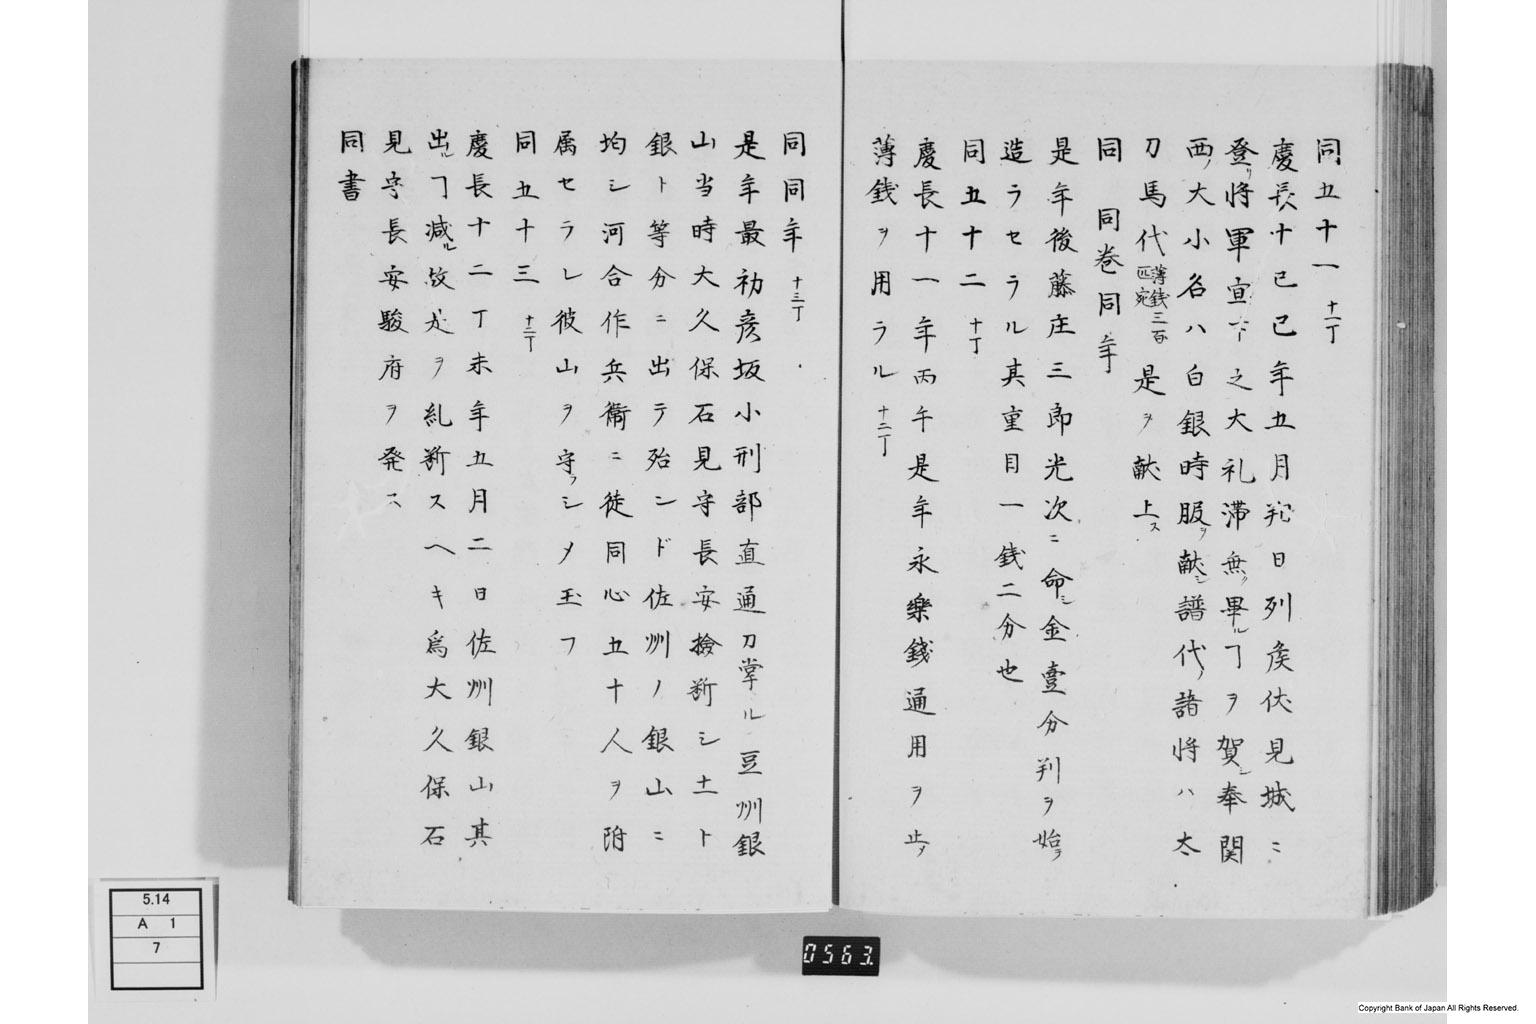 同五十一 十一丁
慶長十乙巳年五月朔日列矦伏見城ニ
登リ将軍宣下之大礼滞無ク畢ルヿヲ賀シ奉関
西ノ大小名ハ白銀時服ヲ献シ譜代ノ諸将ハ太
刀馬代薄銭三百匹宛是ヲ献上ス
同 同巻同年
是年後藤庄三郎光次ニ命シ金壹分判ヲ始テ
造ラセラル其重目一銭二分也
同五十二 十丁
慶長十一年丙午是年永樂錢通用ヲ止メ
薄銭ヲ用ラル 十二丁
同同年 十三丁
是年最初彦坂小刑部直通刀掌ル豆州銀
山当時大久保石見守長安撿断シ土ト
銀ト等分ニ出テ殆ンド佐州ノ銀山ニ
均シ河合作兵衞ニ徒同心五十人ヲ附
属セラレ彼山ヲ守ラシメ玉フ
同五十三 十二丁
慶長十二丁未年五月二日佐州銀山其
出ルヿ減ル故ヲ糺断スヘキ爲大久保石
見守長安駿府ヲ発ス
同書
5.14
A 1
7
0563.
Copyright Bank of Japan All Rights Reserved.